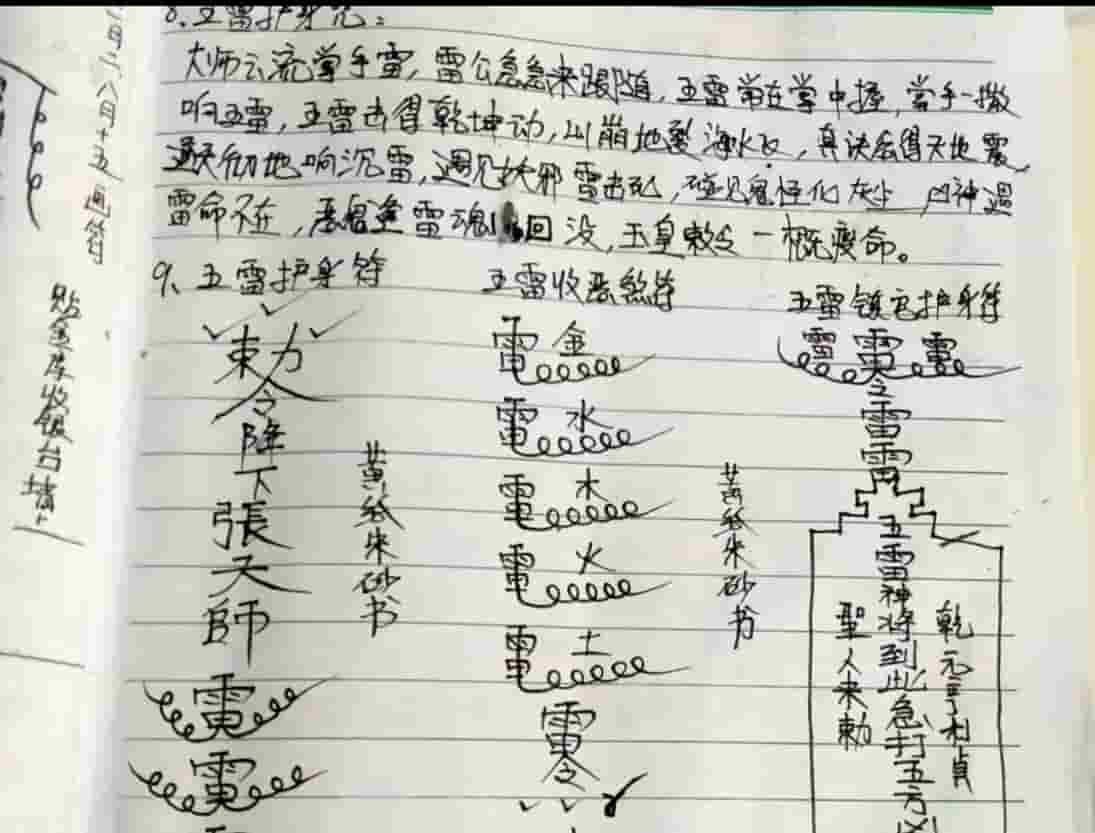 8.五雷护身咒:
大师云流掌手雷,雷公急急来跟随,五雷常在掌中握,掌手一撒
响五雷,五雷击得乾坤动,山崩地裂海水飞,真诀会得天地震,
地响沉雷,遇见妖邪雷击死,碰见鬼怪化灰尘,凶神遇
雷命不在,恶鬼逢雷魂 回没,玉皇敕令一概废命。
9、五雷护身符
五雷收恶煞符
五雷镇宅护身符
敕令降下張天師
雷
雷
黄纸朱砂书
雷金
雷水
雷木
雷火
雷土
雷令
黄纸朱砂书
雷雷雷
雷
雷
五雷神将到此急打五方凶
聖人来勅
乾元亨利貞
月二八月十五画符
贴金库收银台墙上